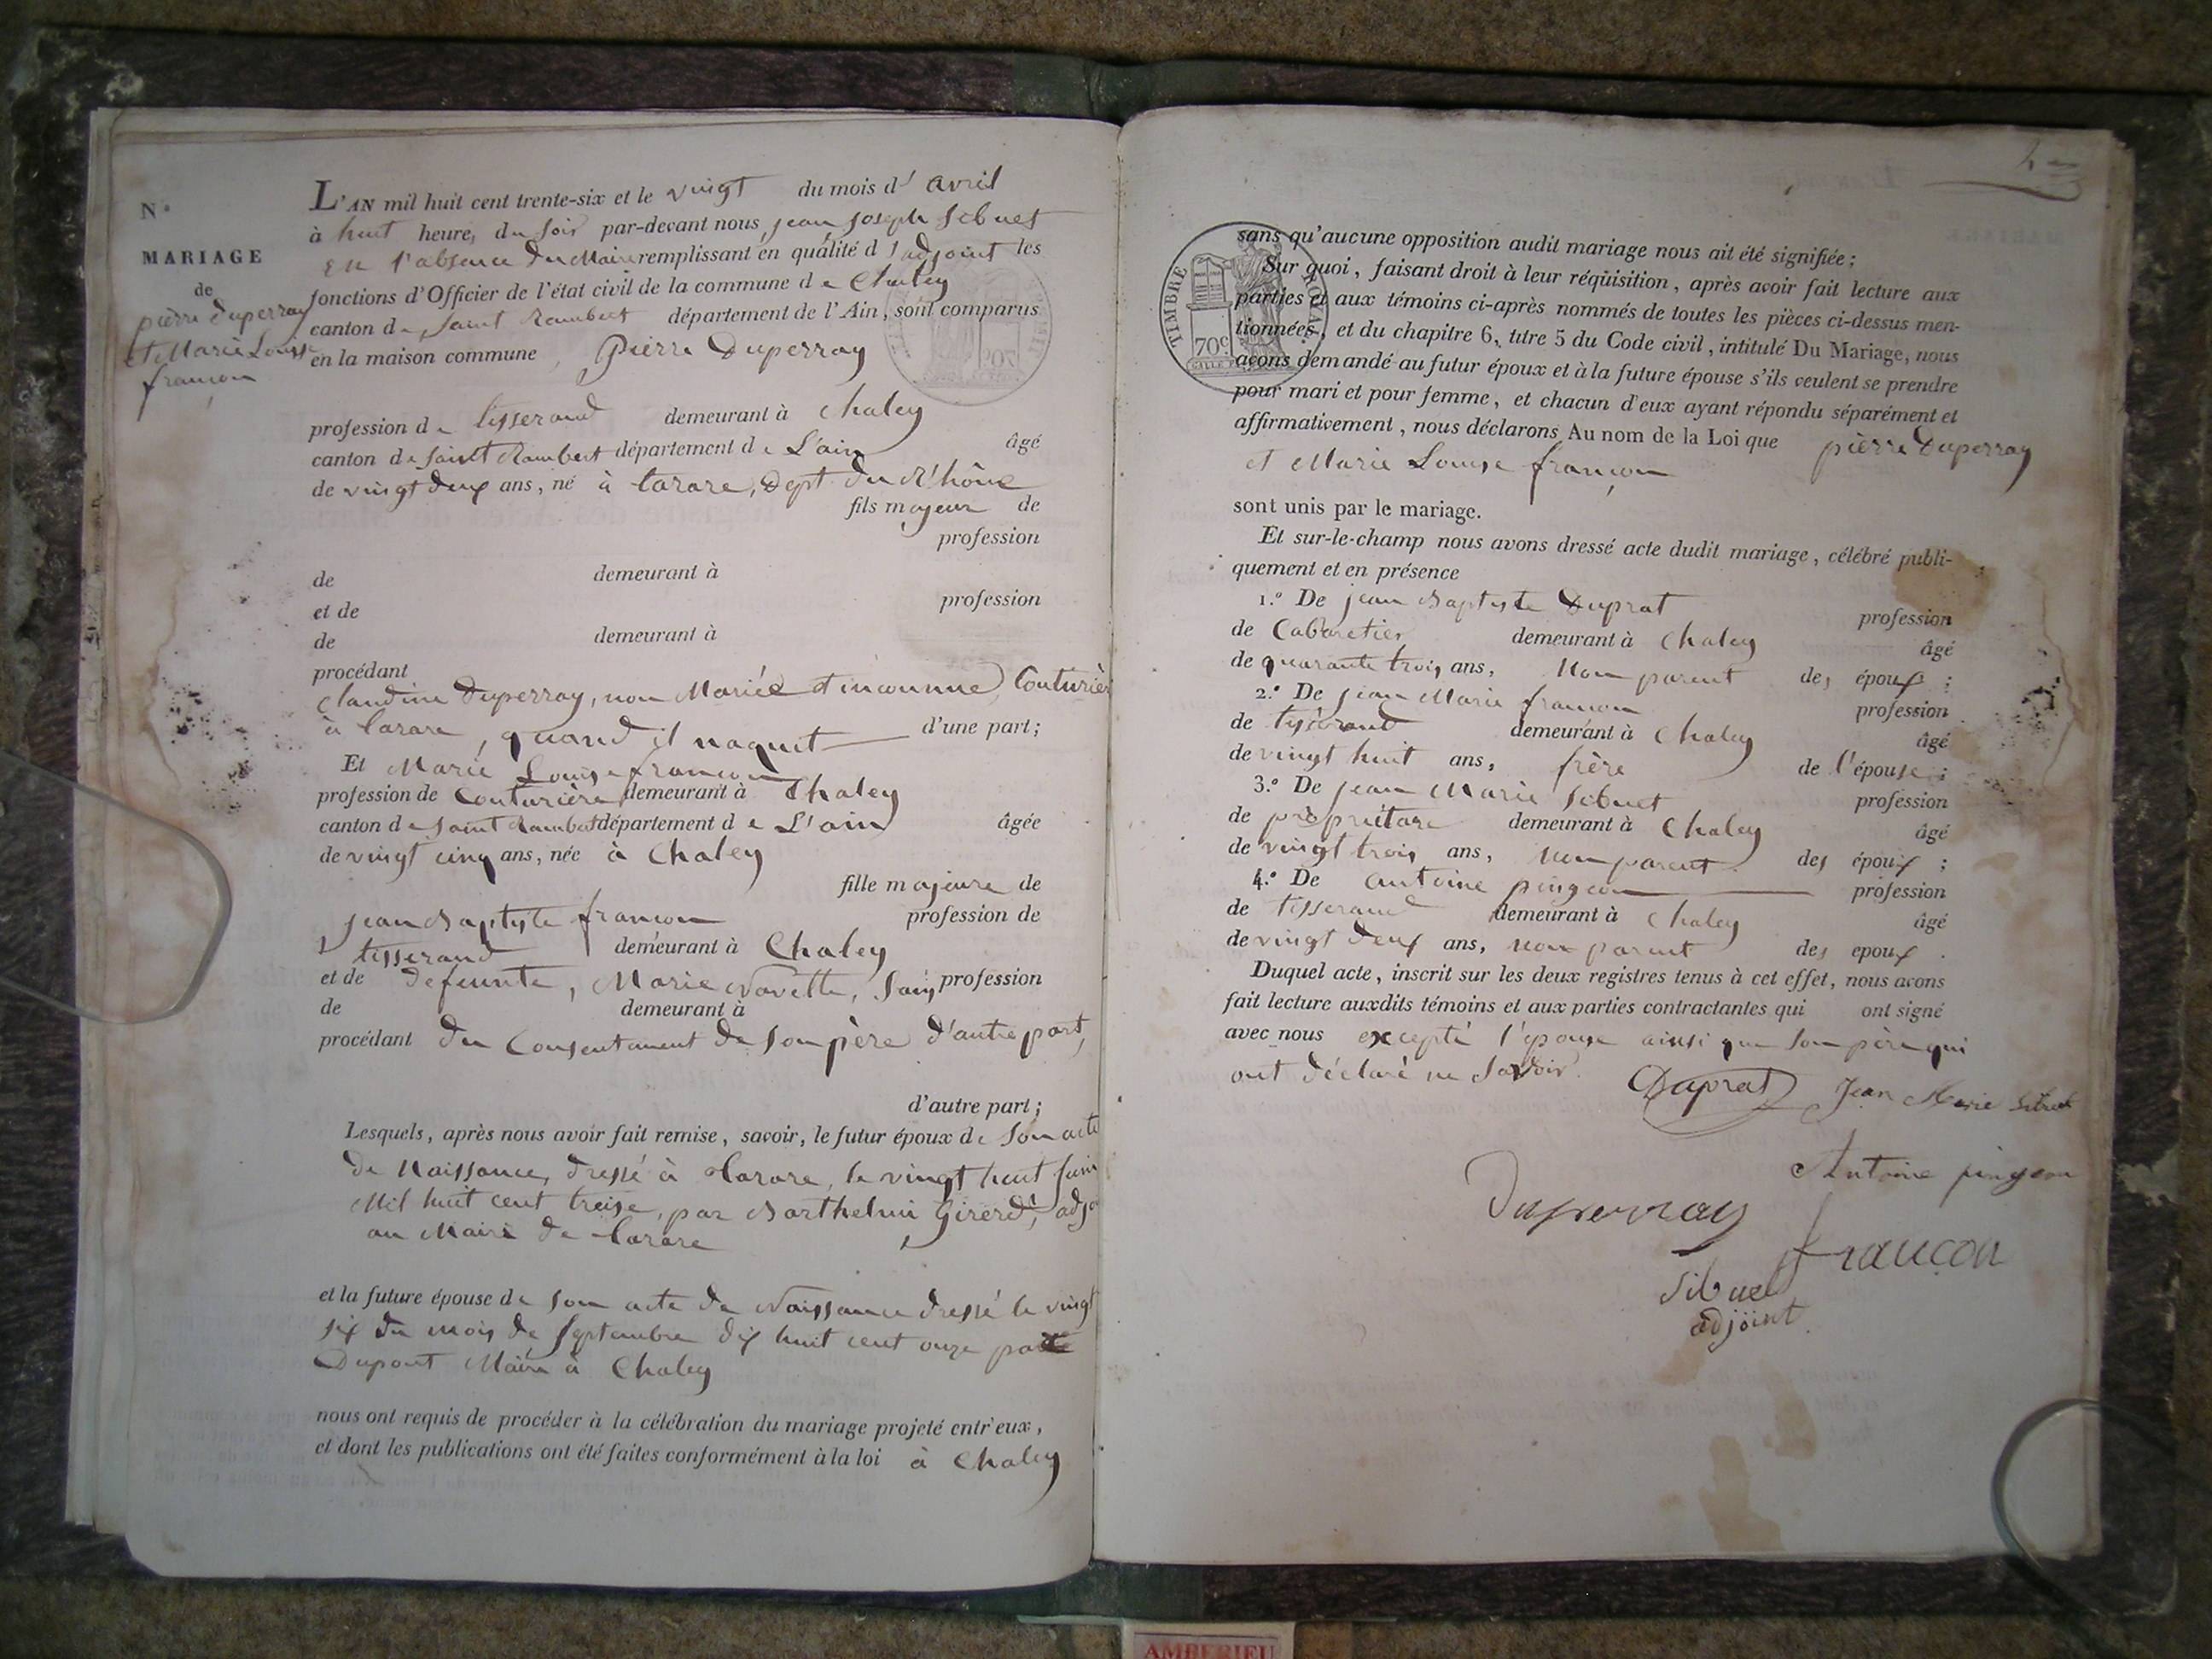 N.o
MARIAGE
de
pièrre Duperray
et Marie Louise
françon
L'AN mil huit cent trente-six et le vingt du mois d' avril
à huit heure, du soir par-devant nous, jean joseph Sibuet
en l'absence du Maire remplissant en qualité d'adjoint les
fonctions d'Officier de l'état civil de la commune de Chaley
canton de Saint Rambert département de l'Ain, sont comparus
en la maison commune, Pierre Duperray
profession de tisserand demeurant à Chaley
canton de Saint Rambert département de L'ain âgé
de vingt deux ans, né à tarare, Dept. du R'hône
fils majeur de
profession
de demeurant à
et de profession
de demeurant à
procédant
Claudine Duperray, non Mariée et inconnue, Couturièr
à tarare, quand il naquit d'une part;
Et Marie Louise françon
profession de Couturière demeurant à Chaley
canton de Saint Rambert département de L'ain âgée
de vingt cinq ans, née à Chaley
fille majeure de
jean Baptiste françon profession de
tisserand demeurant à Chaley
et de defeunte, Marie Navette, Sans profession
de demeurant à
procédant du Consentement de Son père d'autre part,
d'autre part;
Lesquels, après nous avoir fait remise, savoir, le futur époux de Son acte
de Naissance, dressé à tarare, le vingt huit juin
Mil huit cent treise, par Barthelmi Girerd, adjo
au Maire de tarare
et la future épouse de Son acte de Naissance dressé le vingt
six du mois de Septembre dix huit cent onze par
Dupont Maire à Chaley
nous ont requis de procéder à la célébration du mariage projeté entr'eux,
et dont les publications ont été faites conformément à la loi à Chaley
TIMBRE ROYAL
70c
sans qu'aucune opposition audit mariage nous ait été signifiée;
Sur quoi, faisant droit à leur réquisition, après avoir fait lecture aux
parties et aux témoins ci-après nommés de toutes les pièces ci-dessus men-
tionnées, et du chapitre 6, titre 5 du Code civil, intitulé Du Mariage, nous
avons demandé au futur époux et à la future épouse s'ils veulent se prendre
pour mari et pour femme, et chacun d'eux ayant répondu séparément et
affirmativement, nous déclarons Au nom de la Loi que pièrre Duperray
et Marie Louise françon
sont unis par le mariage.
Et sur-le-champ nous avons dressé acte dudit mariage, célébré publi-
quement et en présence
1.o De jean Baptiste Duprat profession
de Cabaretier demeurant à Chaley âgé
de quarante trois ans, Non parent des époux;
2.o De jean Marie françon profession
de tisserand demeurant à Chaley âgé
de vingt huit ans, frère de l'épouse;
3.o De jean Marie Sibuet profession
de propriétare demeurant à Chaley âgé
de vingt trois ans, non parent des époux;
4.o De antoine pingeon profession
de tisserand demeurant à Chaley âgé
de vingt deux ans, non parent des epoux.
Duquel acte, inscrit sur les deux registres tenus à cet effet, nous avons
fait lecture auxdits témoins et aux parties contractantes qui ont signé
avec nous excepté l'épouse ainsi que Son père qui
ont déclaré ne Savoir.
Duprat Jean Marie Sibuet
Antoine pingeon
Duperray
françon
Sibuet
adjoint
AMBERIEU